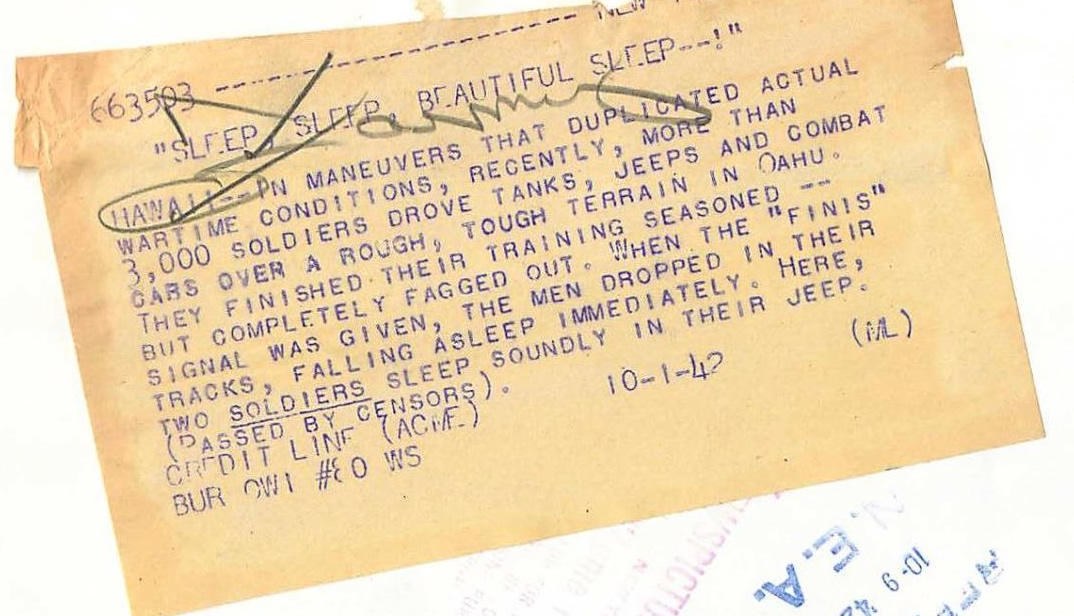 663503 ---------------------------- NEW
"SLEEP, SLEEP, BEAUTIFUL SLEEP--!"
HAWAII--IN MANEUVERS THAT DUPLICATED ACTUAL
WARTIME CONDITIONS, RECENTLY, MORE THAN
3,000 SOLDIERS DROVE TANKS, JEEPS AND COMBAT
CARS OVER A ROUGH, TOUGH TERRAIN IN OAHU.
THEY FINISHED THEIR TRAINING SEASONED --
BUT COMPLETELY FAGGED OUT. WHEN THE "FINIS"
SIGNAL WAS GIVEN, THE MEN DROPPED IN THEIR
TRACKS, FALLING ASLEEP IMMEDIATELY. HERE,
TWO SOLDIERS SLEEP SOUNDLY IN THEIR JEEP.
(PASSED BY CENSORS).
CREDIT LINE (ACME) 10-1-42 (ML)
BUR OWI #80 WS
N.E.A.
10-9 42